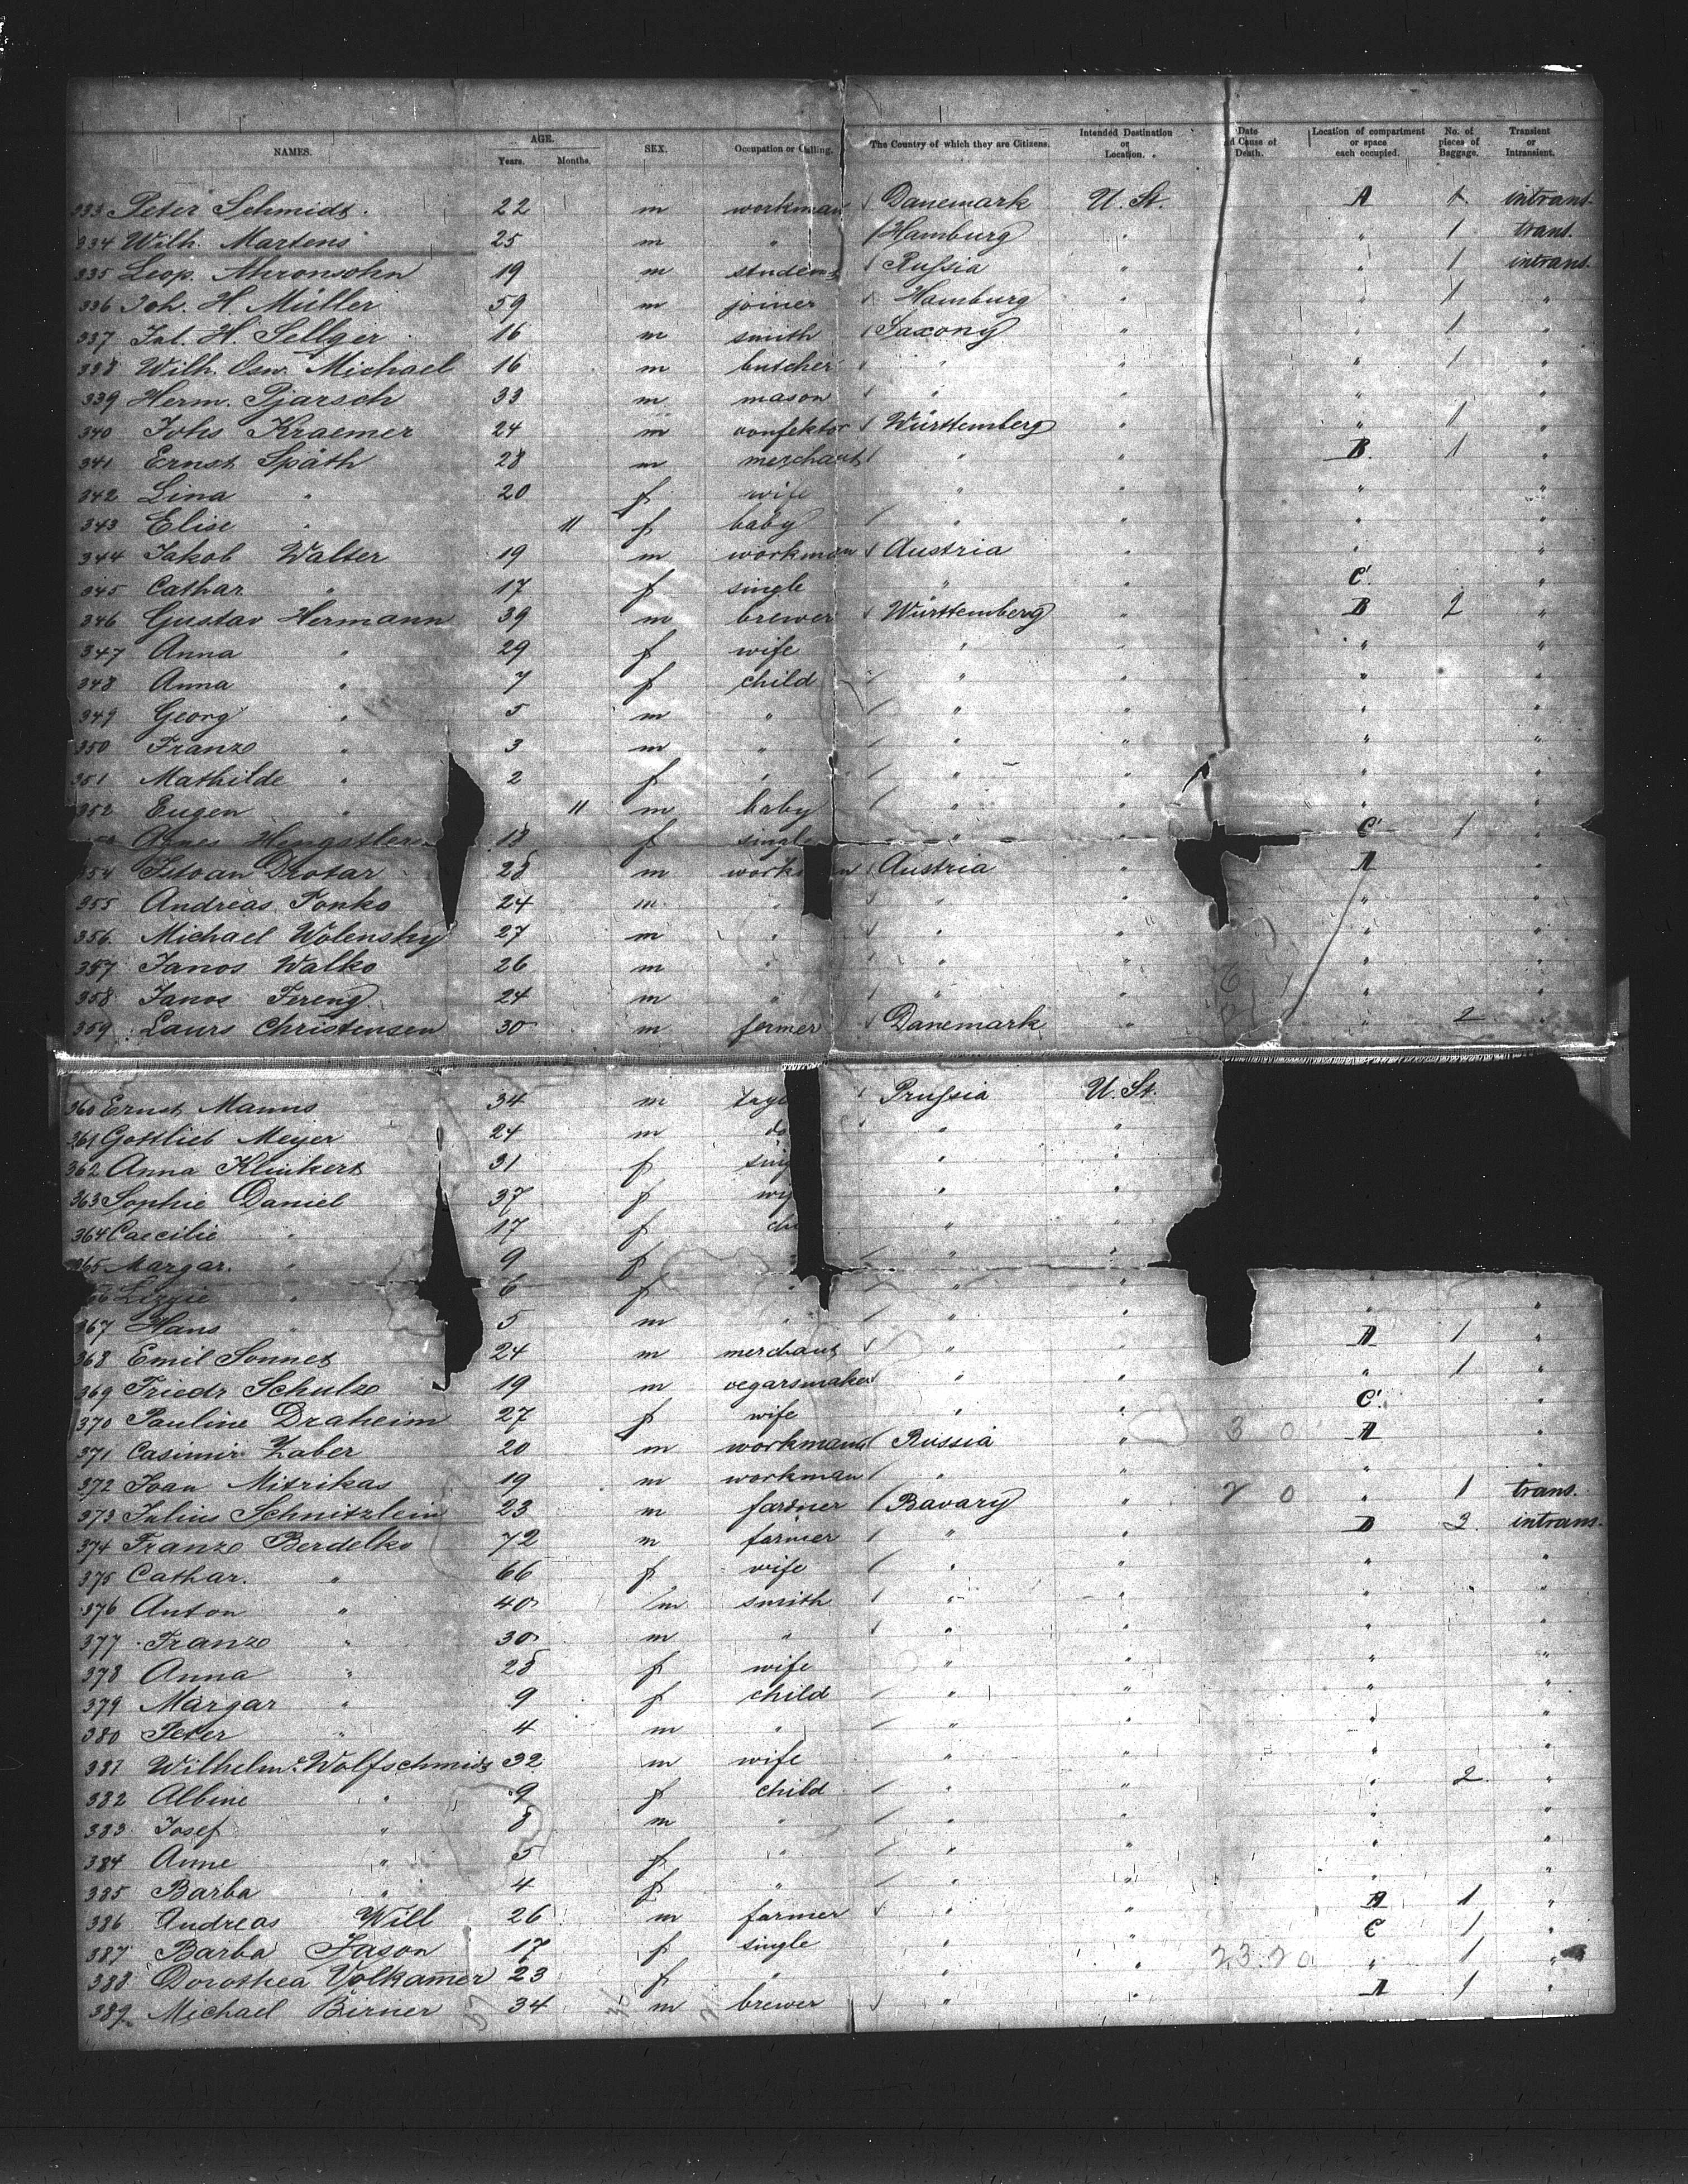 NAMES. AGE. Years. Months. SEX. Occupation or Calling. The Country of which they are Citizens. Intended Destination or Location. Date d Cause of Death. Location of compartment or space each occupied. No. of pieces of Baggage. Transient or Intransient.
333 Peter Schmidt. 22 m workman Danemark U. St. A 1 intrans.
334 Wilh. Martens 25 m " Hamburg " " 1 trans.
335 Leop. Ahronsohn 19 m student Russia " " 1 intrans.
336 Joh. H. Müller 59 m joiner Hamburg " " 1 "
337 Jul. H. Sellger 16 m smith Saxony " " 1 "
338 Wilh. Osw. Michael 16 m butcher " " " 1 "
339 Herm. Pjarsch 33 m mason " " " "
340 Johs Kraemer 24 m confektor Württemberg " " 1 "
341 Ernst Späth 28 m merchant " " B. 1 "
342 Lina " 20 f wife " " " "
343 Elise " 11 f baby " " " "
344 Jakob Walter 19 m workman Austria " " "
345 Cathar. " 17 f single " " C. "
346 Gustav Hermann 39 m brewer Württemberg " B 2 "
347 Anna " 29 f wife " " " "
348 Anna " 7 f child " " " "
349 Georg " 5 m " " " " "
350 Franz " 3 m " " " " "
351 Mathilde " 2 f " " " " "
352 Eugen " 11 m baby " " " "
Agnes Hengstler 18 f single " C 1 "
354 Istvan Drotar 28 m work n Austria " A "
355 Andreas Fonko 24 m " " " " "
356. Michael Wolensky 27 m " " " " "
357 Janos Walko 26 m " " " " "
358 Janos Fereng 24 m " " " " "
359 Laurs Christensen 30 m farmer Danemark " " 2 "
360 Ernst Manns 34 m Prussia U. St.
361 Gottlieb Meyer 24 m do " "
362 Anna Klinkert 31 f sing " "
363 Sophie Daniel 37 f " "
364 Caecilie " 17 f " "
365 Margar. " 9 f " "
366 Lizzie " 6 f " " "
367 Hans " 5 m " " " " "
368 Emil Sonnet 24 m merchant " " A 1 "
369 Friedr Schulze 19 m cegarsmaker " " " 1 "
370 Pauline Draheim 27 f wife " " C. "
371 Casimir Zaber 20 m workman Russia " A "
372 Joan Mitrikas 19 m workman " " " "
373 Julius Schnitzlein 23 m fardner Bavary " " 1 trans.
374 Franz Berdelko 72 m farmer " " B 3 intrans.
375 Cathar. " 66 f wife " " " "
376 Anton " 40 m smith " " " "
377 Franz " 30 m " " " " "
378 Anna " 28 f wife " " " "
379 Margar " 9 f child " " " "
380 Peter " 4 m " " " " "
381 Wilhelm. Wolfschmidt 32 m wife " " " "
382 Albine " 9 f child " " " 2 "
383 Josef " 8 m " " " " "
384 Anne " 5 f " " " " "
385 Barba " 4 f " " " " "
386 Andreas Will 26 m farmer " " A 1 "
387 Barba Jason 17 f single " " C 1 "
388 Dorothea Volkamer 23 f " " " " 1 "
389 Michael Birner 34 m brewer " " A 1 "